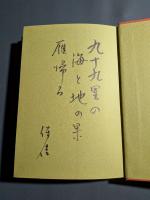 九十九里の
海と地の景
雁帰る